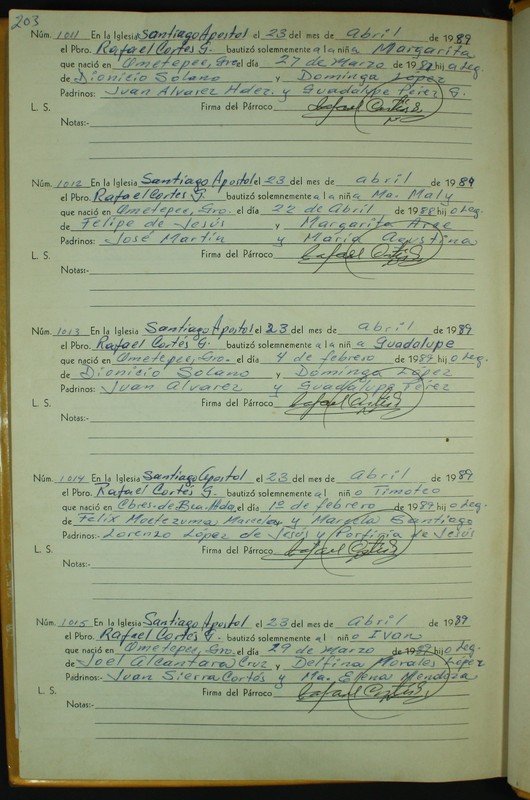 203
Núm. 1011 En la Iglesia Santiago Apostol el 23 del mes de abril de 1989
el Pbro. Rafael Cortés G. bautizó solemnemente a la niña Margarita
que nació en Ometepec, Gro. el día 27 de Marzo de 1981 hija Leg.
de Dionicio Solano y Dominga López
Padrinos: Juan Alvarez Hdez. y Guadalupe Pérez G.
L. S. Firma del Párroco Rafael Cortés G.
Notas:-
Núm. 1012 En la Iglesia Santiago Apostol el 23 del mes de abril de 1989
el Pbro. Rafael Cortés G. bautizó solemnemente a la niña Ma. Maly
que nació en Ometepec, Gro. el día 22 de Abril de 1988 hijo Leg.
de Felipe de Jesús y Margarita Arce
Padrinos: José Martín y María Agustina
L. S. Firma del Párroco Rafael Cortés G.
Notas:-
Núm. 1013 En la Iglesia Santiago Apostol el 23 del mes de abril de 1989
el Pbro. Rafael Cortés G. bautizó solemnemente a la niña Guadalupe
que nació en Ometepec, Gro. el día 4 de febrero de 1989 hijo Leg.
de Dionicio Solano y Dominga López
Padrinos: Juan Alvarez y Guadalupe Pérez
L. S. Firma del Párroco Rafael Cortés G.
Notas:-
Núm. 1014 En la Iglesia Santiago Apostol el 23 del mes de Abril de 1989
el Pbro. Rafael Cortés G. bautizó solemnemente al niño Timoteo
que nació en Cbres. de Bco. Hdo. el día 1º de febrero de 1989 hijo Leg.
de Felix Moctezuma Marcelo y Marcela Santiago
Padrinos:- Lorenzo López de Jesús y Porfiria de Jesús
L. S. Firma del Párroco Rafael Cortés G.
Notas:-
Núm. 1015 En la Iglesia Santiago Apostol el 23 del mes de Abril de 1989
el Pbro. Rafael Cortés G. bautizó solemnemente al niño Ivan
que nació en Ometepec, Gro. el día 29 de Marzo de 1989 hijo Leg.
de Joel Alcantara Cruz y Delfina Morales López
Padrinos:- Juan Sierra Cortés y Ma. Elena Mendoza
L. S. Firma del Párroco Rafael Cortés G.
Notas:-